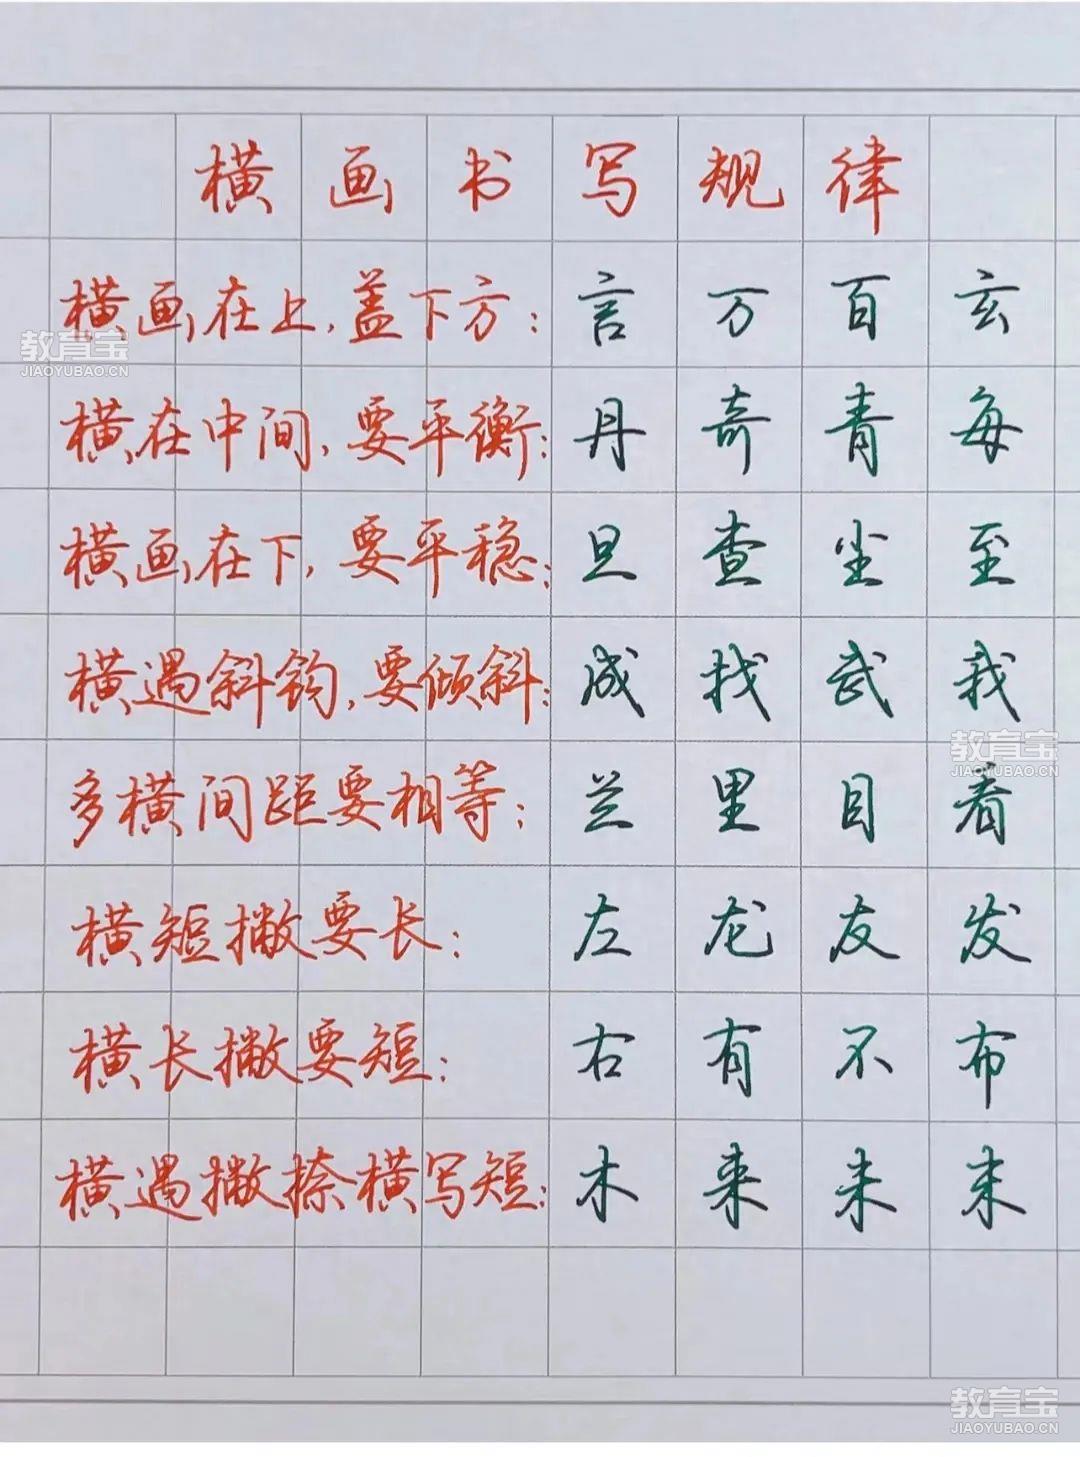 横画书写规律
横画在上,盖下方: 言 万 百 玄
教育宝
JIAOYUBAO.CN
横在中间,要平衡: 丹 奇 青 每
横画在下,要平稳: 旦 查 尘 至
横遇斜钩,要倾斜: 成 找 武 我
教育宝
JIAOYUBAO.CN
多横间距要相等: 兰 里 目 看
横短撇要长: 左 龙 友 发
横长撇要短: 右 有 不 布
横遇撇捺横写短: 木 来 未 末
教育宝
JIAOYUBAO.CN